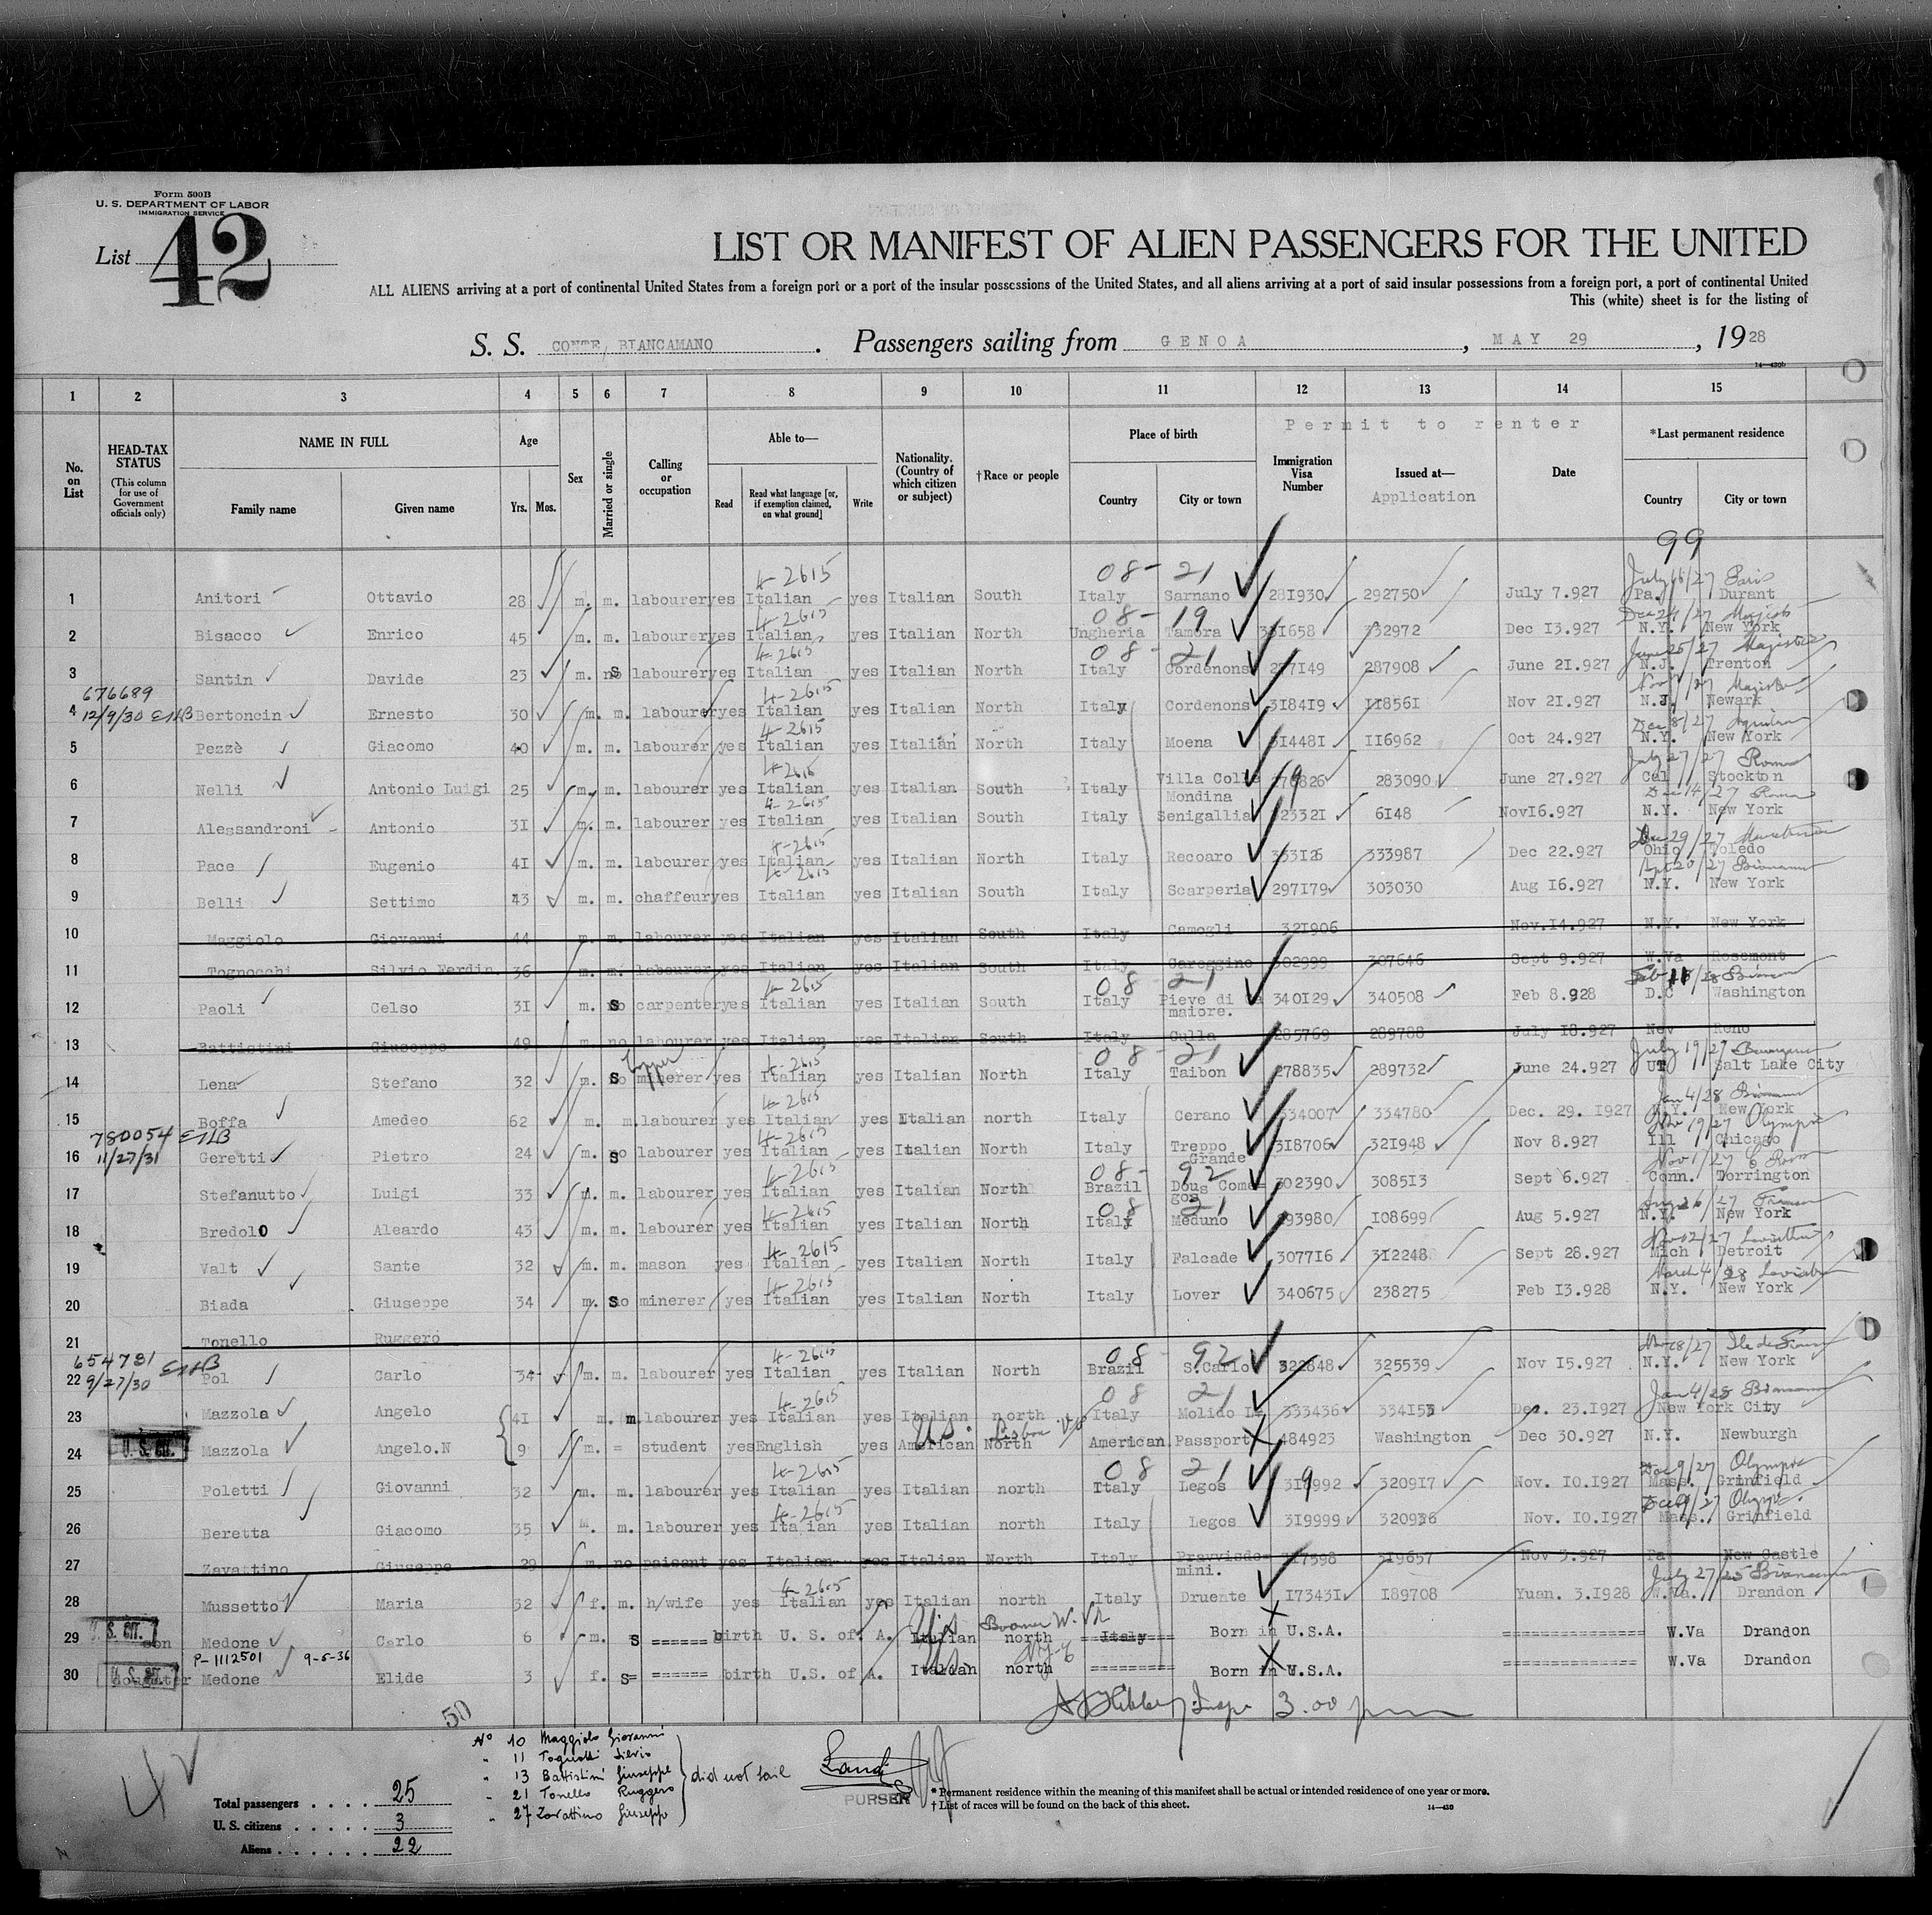 Form 500B
U. S. DEPARTMENT OF LABOR
IMMIGRATION SERVICE
List 42
LIST OR MANIFEST OF ALIEN PASSENGERS FOR THE UNITED
ALL ALIENS arriving at a port of continental United States from a foreign port or a port of the insular possessions of the United States, and all aliens arriving at a port of said insular possessions from a foreign port, a port of continental United
This (white) sheet is for the listing of
S. S. CONTE BIANCAMANO. Passengers sailing from GENOA, MAY 29, 1928
14—430b
1 2 3 4 5 6 7 8 9 10 11 12 13 14 15
Permit to renter
HEAD-TAX STATUS (This column for use of Government officials only)
No. on List
NAME IN FULL
Family name Given name
Age Yrs. Mos.
Sex
Married or single
Calling or occupation
Able to—
Read Read what language [or, if exemption claimed, on what ground] Write
Nationality. (Country of which citizen or subject)
†Race or people
Place of birth
Country City or town
Immigration Visa Number
Issued at— Application
Date
*Last permanent residence
Country City or town
99
4-2615 08- 21 July 16/27 Paris
1 Anitori Ottavio 28 m. m. labourer yes Italian yes Italian South Italy Sarnano 281930 292750 July 7.927 Pa. Durant
4-2615 08- 19 Dec 24/27
2 Bisacco Enrico 45 m. m. labourer yes Italian yes Italian North Ungheria Tamora 331658 332972 Dec 13.927 N.Y. New York
4-2615 08- 21 June 25/27
3 Santin Davide 23 m. S labourer yes Italian yes Italian North Italy Cordenons 277149 287908 June 21.927 N.J. Trenton
676689 4-2615
4 12/9/30 Bertoncin Ernesto 30 m. m. labourer yes Italian yes Italian North Italy Cordenons 318419 118561 Nov 21.927 N.J. Newark
4-2615 Dec 8/27
5 Pezzè Giacomo 40 m. m. labourer yes Italian yes Italian North Italy Moena 314481 116962 Oct 24.927 N.Y. New York
4-2615 July 27/27 Roma
6 Nelli Antonio Luigi 25 m. m. labourer yes Italian yes Italian South Italy Villa Colle Mondina 276826 283090 June 27.927 Cal Stockton
4-2615 Dec 14/27 Roma
7 Alessandroni Antonio 31 m. m. labourer yes Italian yes Italian South Italy Senigallia 323321 6148 Nov16.927 N.Y. New York
4-2615 Dec 29/27
8 Pace Eugenio 41 m. m. labourer yes Italian yes Italian North Italy Recoaro 333126 333987 Dec 22.927 Ohio Toledo
4-2615
9 Belli Settimo 43 m. m. chaffeur yes Italian yes Italian South Italy Scarperia 297179 303030 Aug 16.927 N.Y. New York
10 Maggiolo Giovanni 44 m. m. labourer yes Italian yes Italian South Italy Camogli 321906 Nov.14.927 N.Y. New York
11 Tognocchi Silvio Ferdin. 36 m. m. labourer yes Italian yes Italian South Italy Careggine 302999 307646 Sept 9.927 W.Va Rosemont
4-2615 08 - 21
12 Paoli Celso 31 m. S carpenter yes Italian yes Italian South Italy Pieve di Ca maiore. 340129 340508 Feb 8.928 D.C Washington
13 Battistini Giuseppe 49 m no labourer yes Italian yes Italian South Italy Culla 285769 289788 July 18.927 Nev Reno
4-2615 08 - 21 July 19/27
14 Lena Stefano 32 m. S minerer yes Italian yes Italian North Italy Taibon 278835 289732 June 24.927 UT Salt Lake City
4-2615 Jan 4/28
15 Boffa Amedeo 62 m. m. labourer yes Italian yes Italian north Italy Cerano 334007 334780 Dec. 29. 1927 N.Y. New York
780054 4-2615 Nov 19/27 Olympic
16 11/27/31 Geretti Pietro 24 m. S labourer yes Italian yes Italian North Italy Treppo Grande 318706 321948 Nov 8.927 Ill Chicago
4-2615 08- 92 Nov 1/27
17 Stefanutto Luigi 33 m. m. labourer yes Italian yes Italian North Brazil Dous Come- gos 302390 308513 Sept 6.927 Conn. Torrington
4-2615 08 21 Aug 26/27
18 Bredolo Aleardo 43 m. m. labourer yes Italian yes Italian North Italy Meduno 293980 108699 Aug 5.927 N.Y. New York
4-2615 Nov 02/27
19 Valt Sante 32 m. m. mason yes Italian yes Italian North Italy Falcade 307716 312248 Sept 28.927 Mich Detroit
4-2615 March 4/28
20 Biada Giuseppe 34 m. S minerer yes Italian yes Italian North Italy Lover 340675 238275 Feb 13.928 N.Y. New York
21 Tonello Ruggero
654781 4-2615 08- 92
22 9/27/30 Pol Carlo 34 m. m. labourer yes Italian yes Italian North Brazil S.Carlo 322848 325539 Nov 15.927 N.Y. New York
4-2615 08 21 Jan 4/28
23 Mazzola Angelo 41 m. m. labourer yes Italian yes Italian north Italy 333436 334153 Dec. 23.1927 New York City
24 U. S. CIT. Mazzola Angelo.N 9 m. = student yes English yes American U.S. North American Passport 484923 Washington Dec 30.927 N.Y. Newburgh
4-2615 08 21 Dec 9/27 Olympic
25 Poletti Giovanni 32 m. m. labourer yes Italian yes Italian north Italy Legos 318992 320917 Nov. 10.1927 Mass. Grinfield
4-2615 Dec 9/27 Olympic
26 Beretta Giacomo 35 m. m. labourer yes Italian yes Italian north Italy Legos 319999 320936 Nov. 10.1927 Mass. Grinfield
27 Zavattino Giuseppe 29 m. no paisant yes Italian yes Italian North Italy Pravvisdo- mini. 317598 319657 Nov 5.927 Pa New Castle
4-2615 July 27/25
28 Mussetto Maria 32 f. m. h/wife yes Italian yes Italian north Italy Druente 173431 189708 Yuan. 3.1928 W.Va. Drandon
29 U. S. CIT. son Medone Carlo 6 m. S ====== birth U. S. of A. Italian north Italy Born in U.S.A. ============== W.Va Drandon
P-1112501 9-5-36
30 U. S. CIT. daughter Medone Elide 3 f. S= ====== birth U.S. of A. Italian north ========= Born in U.S.A. ============== W.Va Drandon
50
3.00 pm
No 10 Maggiolo Giovanni
" 11 Tognotti Silvio
" 13 Battistini Giuseppe
" 21 Tonello Ruggero
" 27 Zavattino Giuseppe
did not sail
PURSER
Total passengers . . . . 25
U. S. citizens . . . . . 3
Aliens . . . . . . 22
* Permanent residence within the meaning of this manifest shall be actual or intended residence of one year or more.
† List of races will be found on the back of this sheet.
14—430